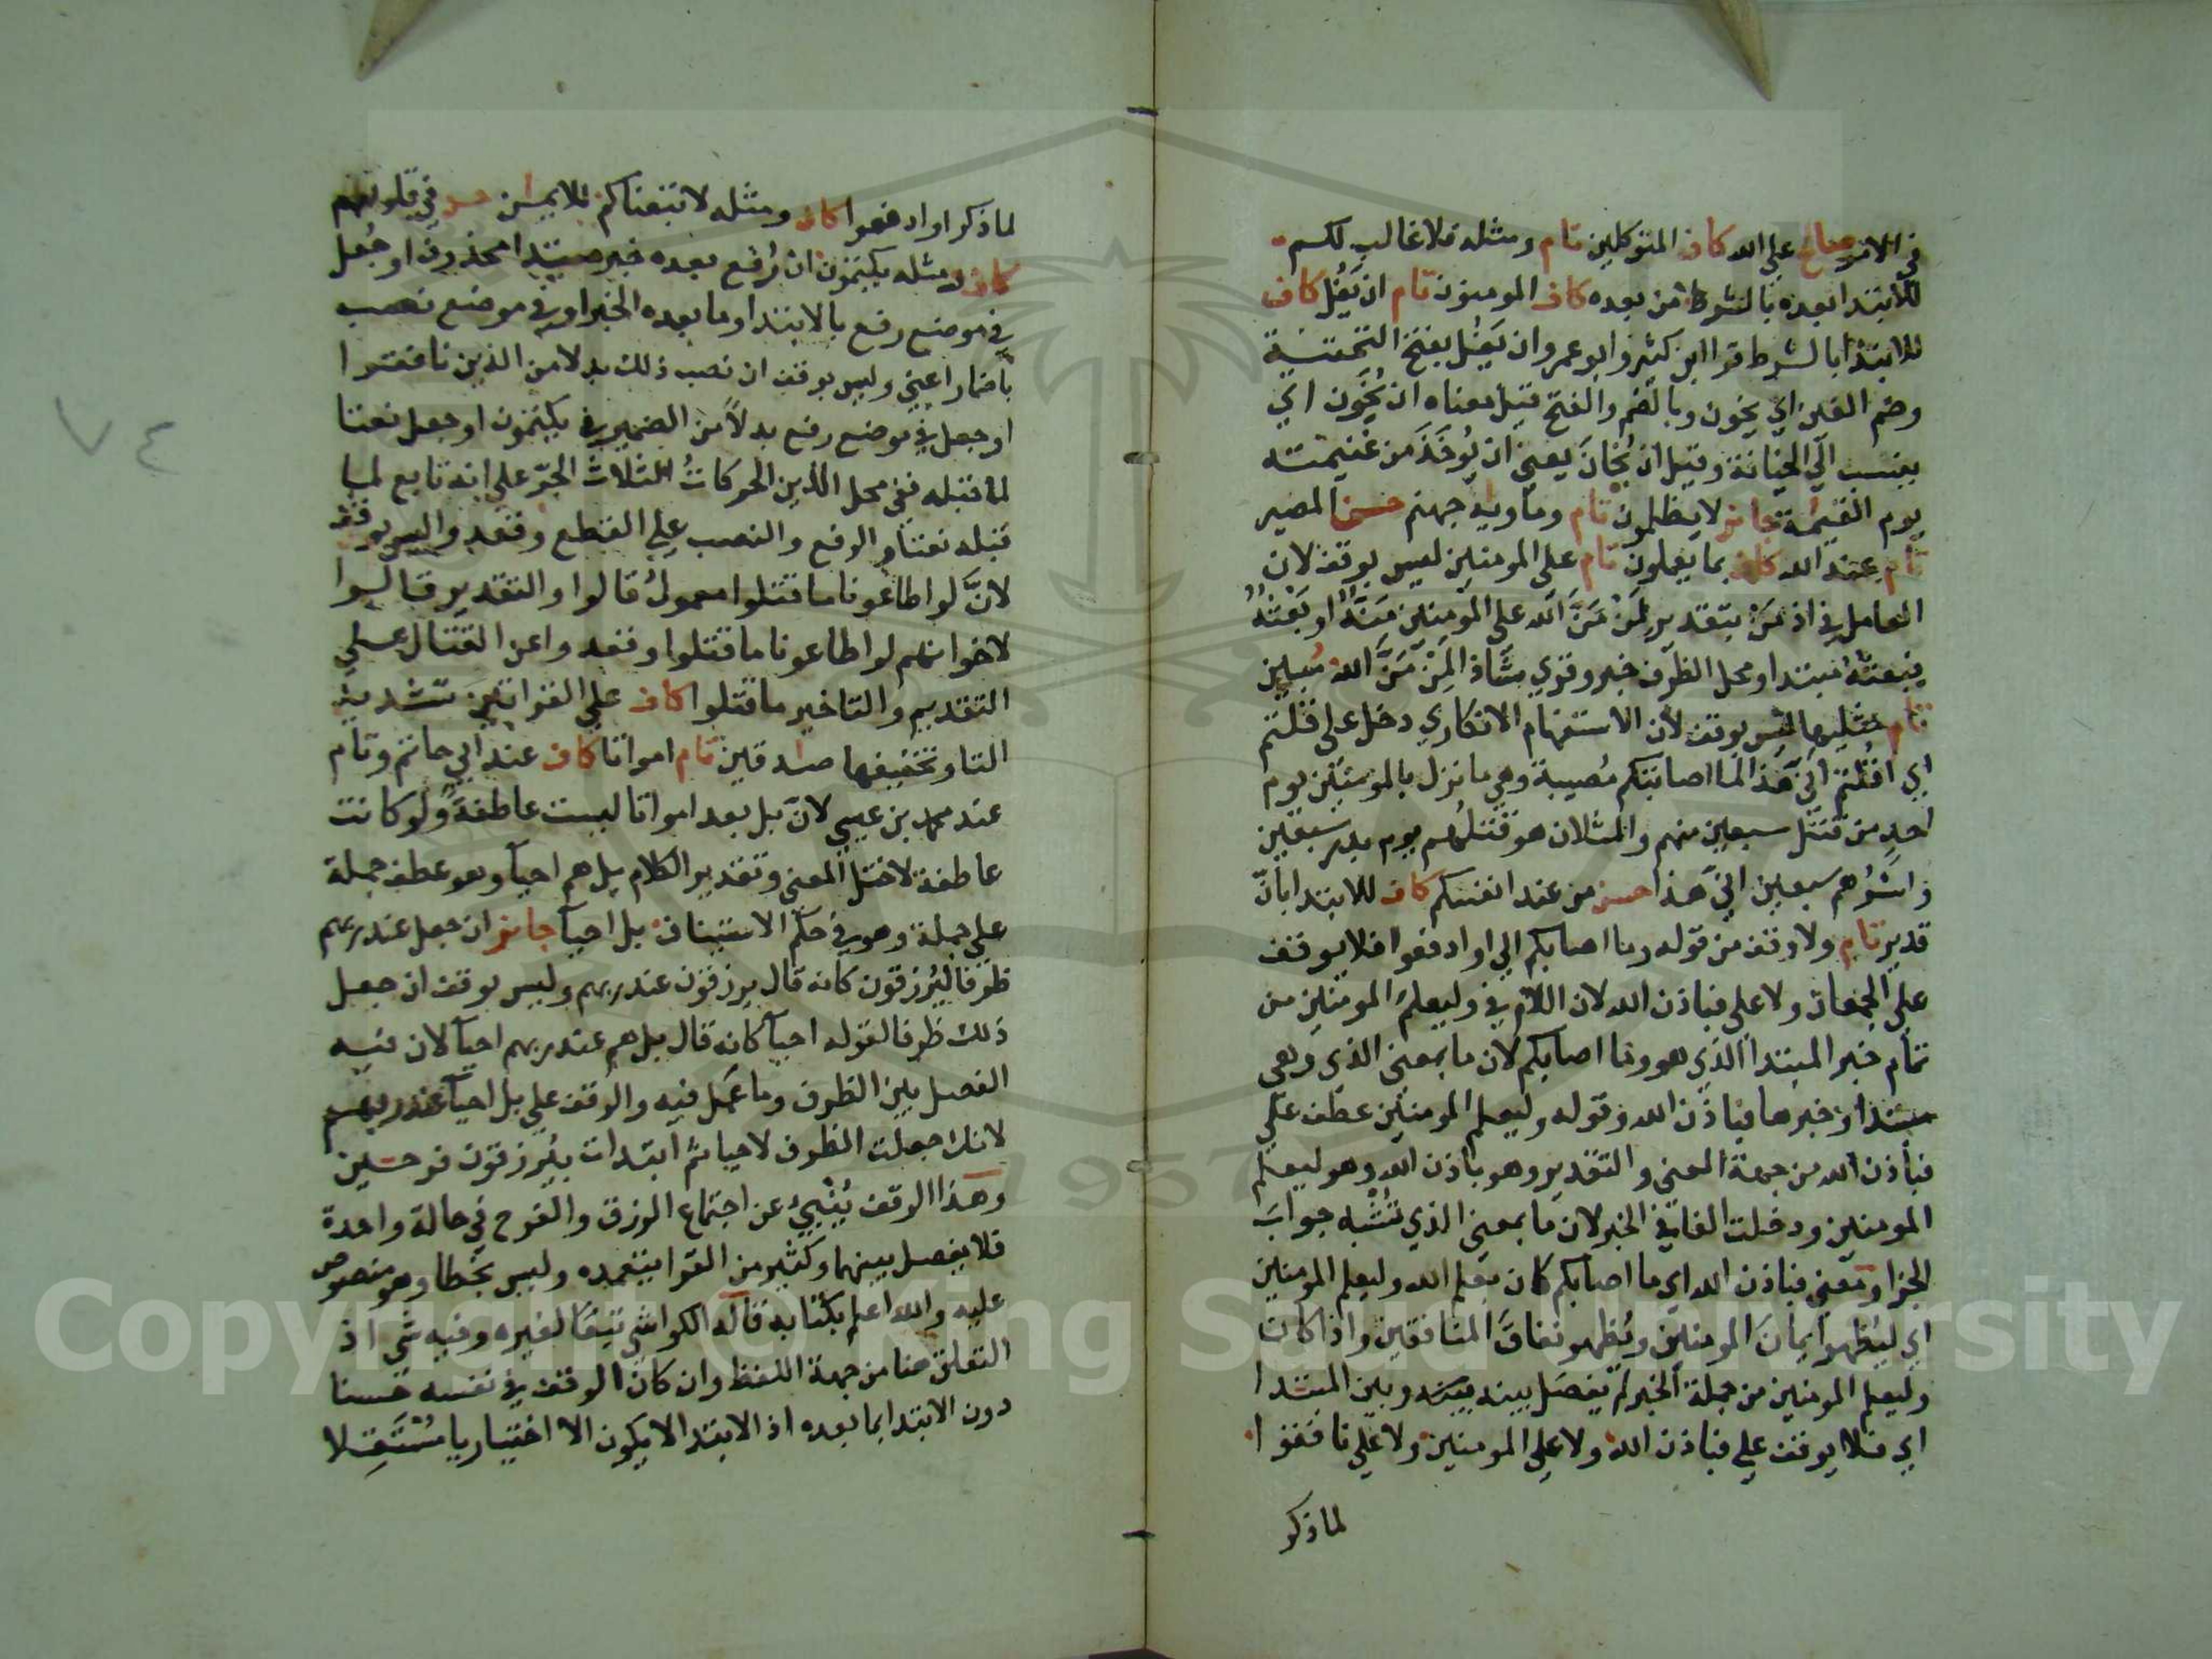 في الامر صالح على الله كاف المتوكلين تام ومثله فلا غالب لكم
للابتدا بعده بالشرط من بعده كاف المومنون تام ان يغل كاف
للابتدا بالشرط قرا ابن كثير وابو عمرو ان يَغُل بفتح التحتية
وضم الغين اي يخون وبالضم والفتح قيل معناه ان يُخَوَّن اي
ينسب الى الخيانة وقيل ان يُخانَ يعني ان يُوخَذَ من غنيمته
يوم القيمة جائز لا يظلمون تام وماويه جهنم حسن المصير
تام عند الله كاف بما يعملون تام على المومنين ليس بوقف لان
العامل في اذ مَنَّ بتقدير لمَنْ مَنَّ الله على المومنين مَنُّهُ او بَعْثُهُ
فبعثُهُ مبتدا ومحل الظرف خبر وقري شاذا لَمِنْ مَنِّ اللهِ مُبين
تام مثليها ليس بوقف لان الاستفهام الانكاري دخل على قلتم
اي اقلتم انى هذا لما اصابتكم مُصيبة وهي ما نزل بالمومنين يوم
احدٍ من قتل سبعين منهم والمثلان هو قتلُهُم يوم بدر سبعين
واسْرُهم سبعين انى هذا حسن من عند انفسكم كاف للابتدا بانّ
قدير تام ولا وقف من قوله وما اصابكم الى او ادفعوا فلا يوقف
على الجمعان ولا على فباذن الله لان اللام في وليعلم المومنين من
تمام خبر المبتدا الذي هو وما اصابكم لان ما بمعنى الذي وهي
مبتدا وخبرها فباذن الله وقوله وليعلم المومنين عطف على
فباذن الله من جهة المعنى والتقدير وهو باذن الله وهو ليعلم
المومنين ودخلت الفا في الخبر لان ما بمعنى الذي تُشْبه جوابَ
الجزا ومعنى فباذن الله اي ما اصابكم كان بعلم الله وليعلم المومنين
اي ليُظهر ايمانَ المومنين ويُظهر نفاقَ المنافقين واذا كان
وليعلم المومنين من جملة الخبر لم يفصل بينه وبين المبتدا
اي فلا يوقف على فباذن الله ولا على المومنين ولا على نافقوا
لما ذكر
لما ذكر او ادفعوا كاف ومثله لاتبعناكم للايمان حسن في قلوبهم
كاف ومثله يكتمون ان رُفع بعده خبر مبتدا محذوف او جُعل
في موضع رفع بالابتدا وما بعده الخبر او في موضع نصب
باضمار اعني وليس بوقف ان نصب ذلك بدلا من الذين نافقوا
او جعل في موضع رفع بدلاً من الضمير في يكتمون او جعل نعتا
لما قبله ففي محل الذين الحركاتُ الثلاث الجرّ على انه تابع لما
قبله نعتا والرفع والنصب على القطع وقعدوا ليس بوقف
لانَّ لو اطاعونا ما قتلوا معمولُ قالوا والتقدير قالوا
لاخوانهم لو اطاعونا ما قتلوا وقعدوا عن القتال على
التقديم والتاخير ما قتلوا كاف على القراتين تشديد
التا وتخفيفها صادقين تام امواتا كاف عند ابي حاتم وتام
عند محمد بن عيسى لانَّ بل بعد امواتا ليست عاطفةً ولو كانت
عاطفة لاختل المعنى وتقدير الكلام بل هم احيآ وهو عطف جملة
على جملة وهو في حكم الاستيناف بل احيآ جائز ان جعل عند ربهم
ظرفا ليُرزقون كانه قال يرزقون عند ربهم وليس بوقف ان جعل
ذلك ظرفا لقوله احيآ كانه قال بل هم عند ربهم احيآ لان فيه
الفصل بين الظرف وما عَمِل فيه والوقف على بل احيآ عند ربهم
لانك جعلت الظرف لاحيا ثم ابتدات بيُرزقون فرحين
وهذا الوقف يُنْبِيُ عن اجتماع الرزق والفرح في حالة واحدة
فلا يفصل بينهما وكثير من القرا يتعمده وليس بخطا وهو منصوص
عليه والله اعلم بكتابه قاله الكواشي تبعًا لغيره وفيه شي اذ
التعلق هنا من جهة اللفظ وان كان الوقف في نفسه حسنا
دون الابتدا بما بعده اذ الابتدا لا يكون الا اختياريا مُسْتَقِلا
٧٤
Copyright © King Saud University
1957